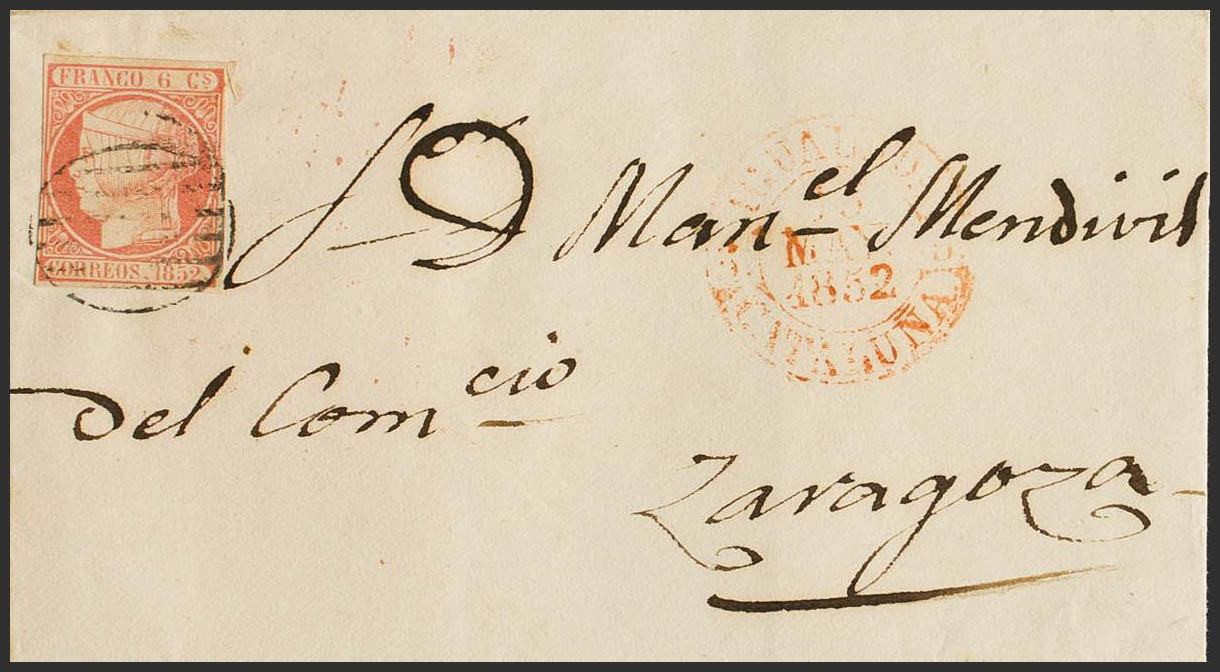 FRANCO 6 Cs
CORREOS. 1852
Sr D Man.el Mendivil
MAY
1852
CATALUÑA
del Comcio
Zaragoza